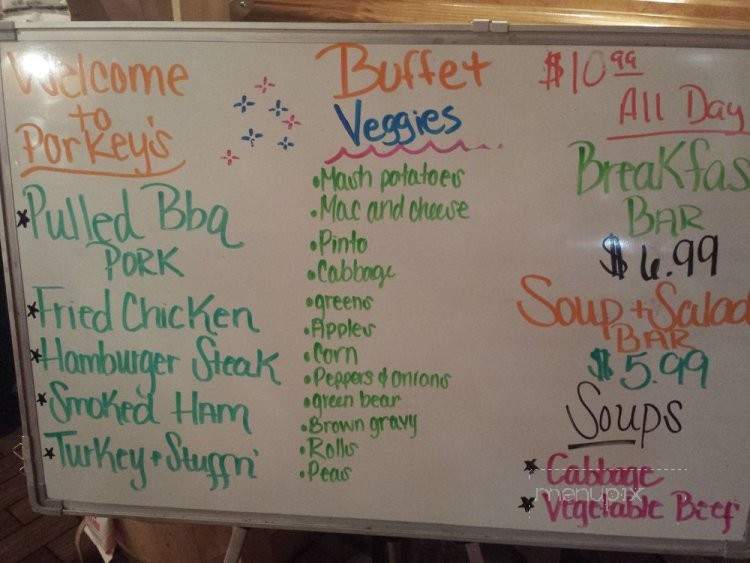 Welcome
to
Porkey's
Pulled Bbq
Pork
Fried Chicken
Hamburger Steak
Smoked Ham
Turkey + Stuffn'
Buffet
Veggies
Mash potatoes
Mac and cheese
Pinto
Cabbage
greens
Apples
Corn
Peppers & onions
green bean
Brown gravy
Rolls
Peas
$10.99
All Day
Breakfas
Bar
$6.99
Soup + Salad
Bar
$5.99
Soups
Cabbage
Vegetable Beef
menupix